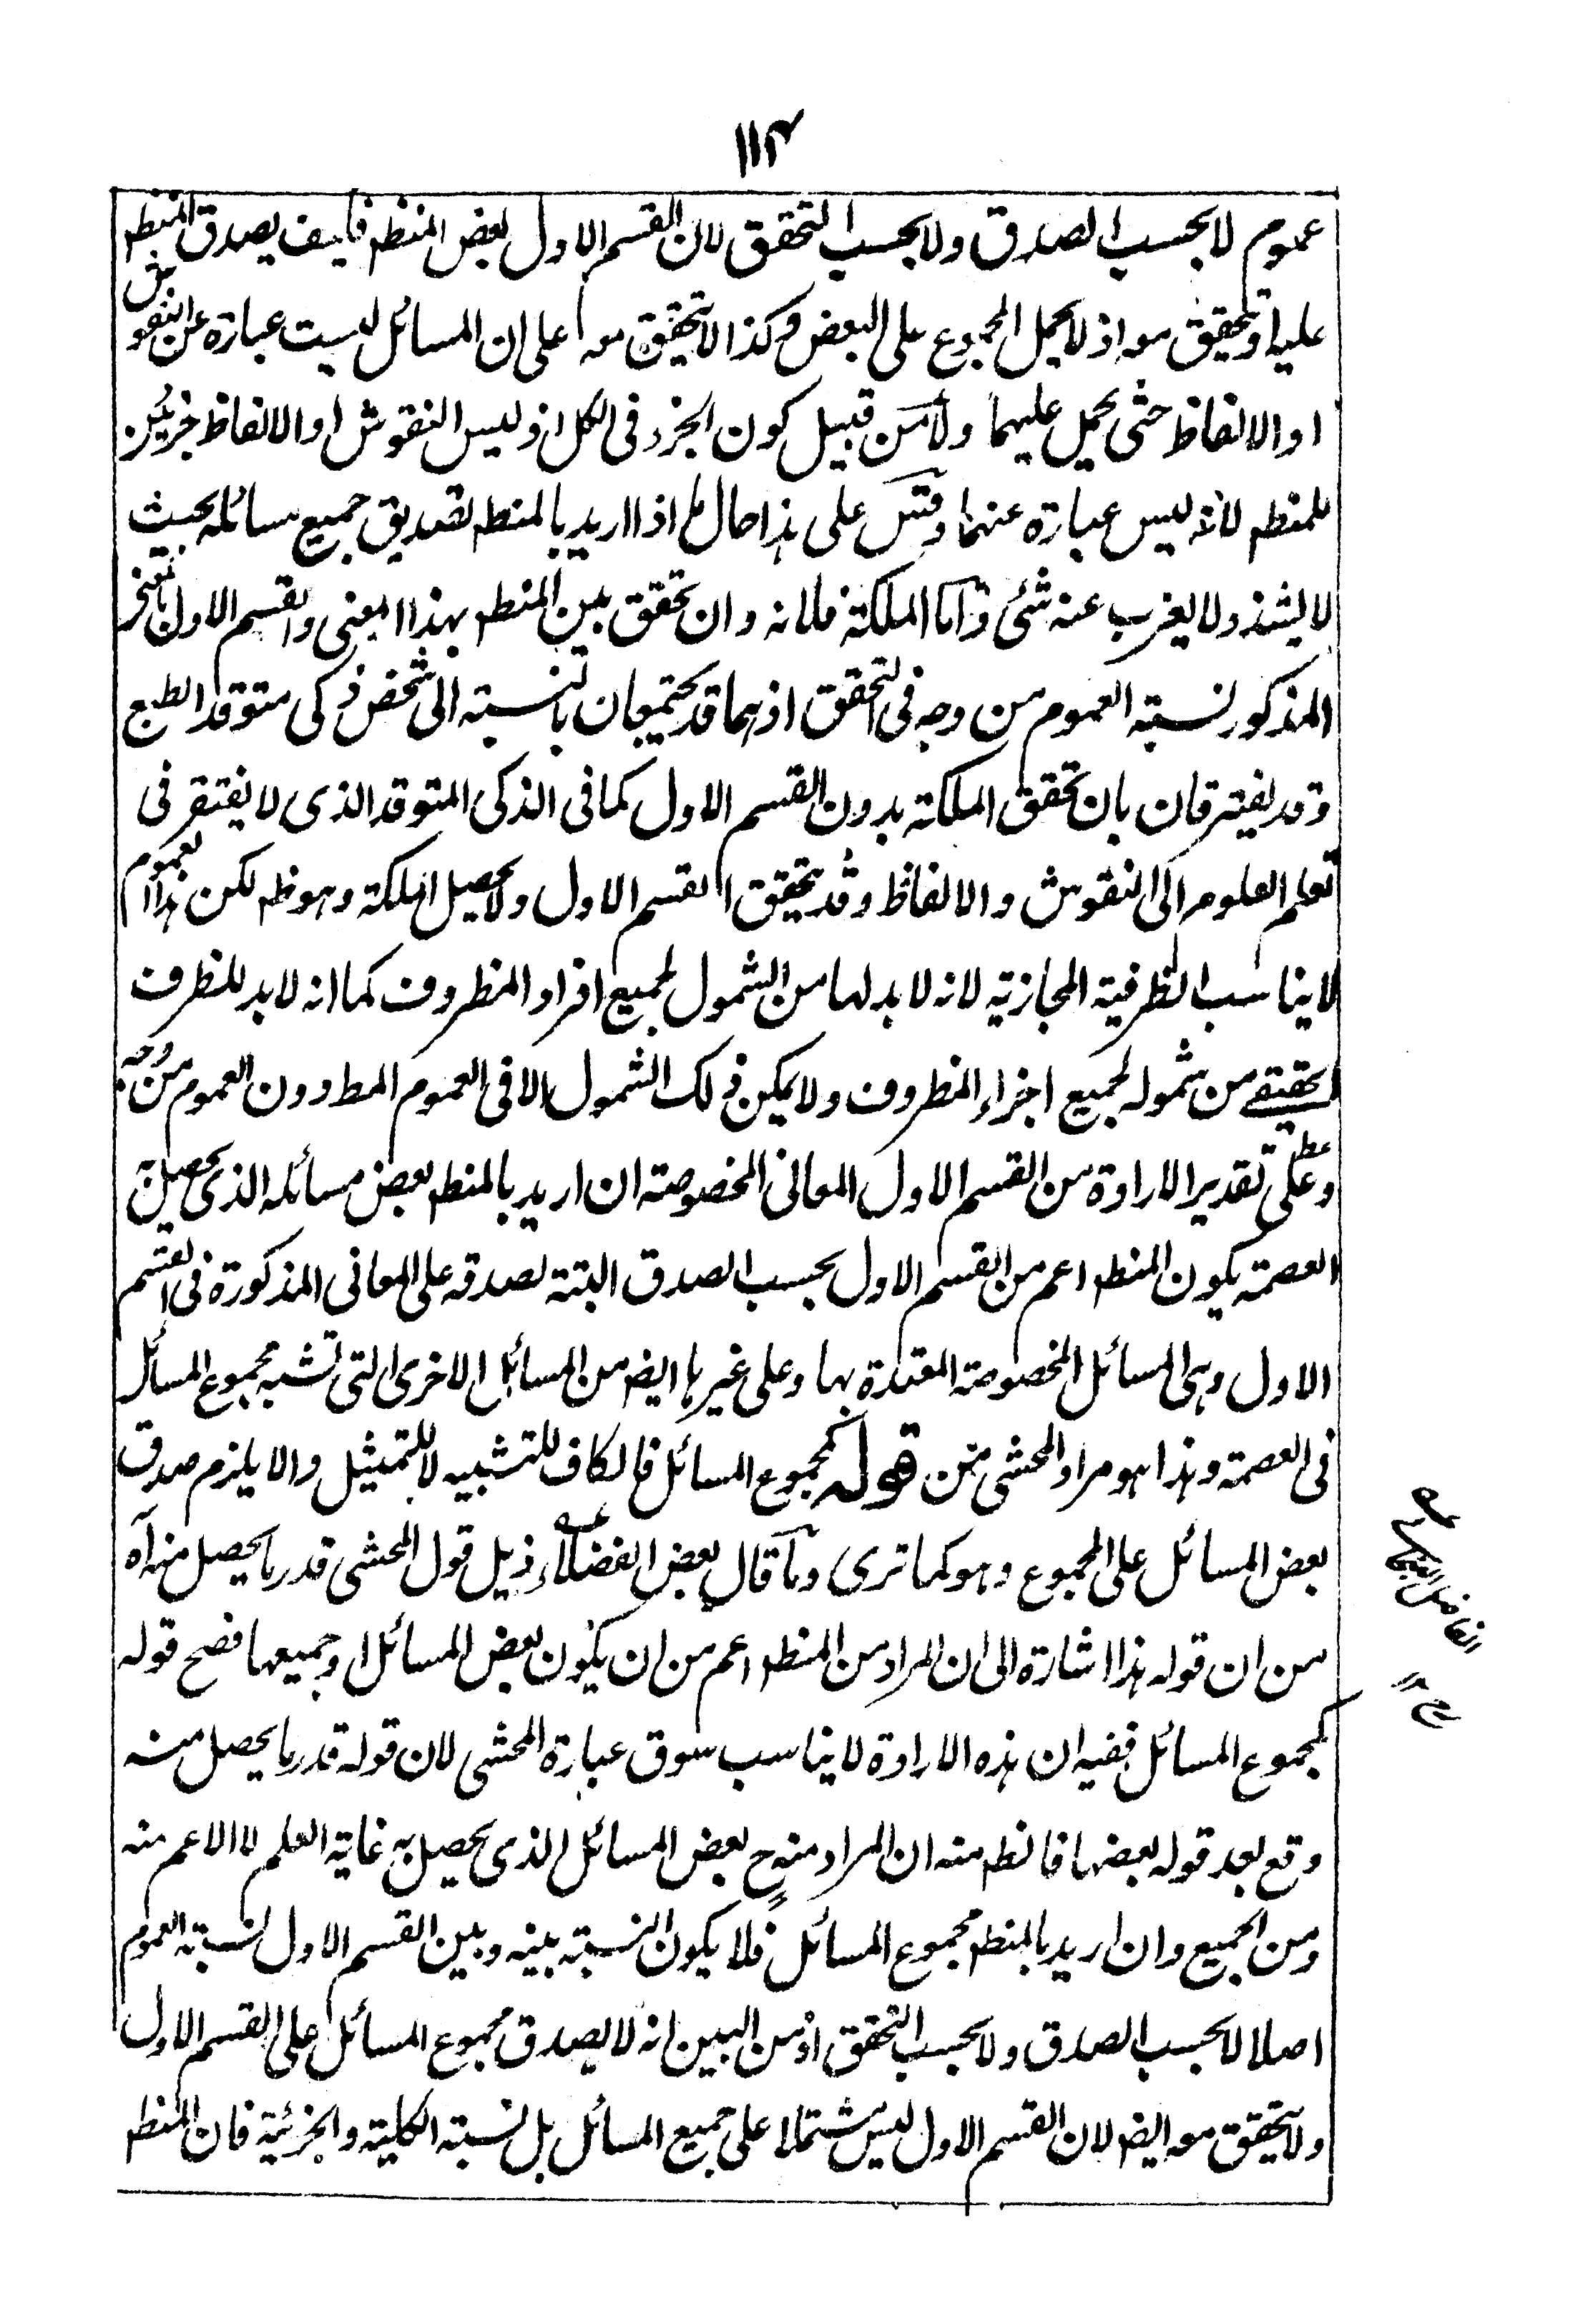 ١١٤
عموم لا بحسب الصدق ولا بحسب التحقق لان القسم الاول بعض المنطه فكيف يصدق المنطه
عليه او يتحقق معه اذ لا يحمل المجموع على البعض وكذا لا يتحقق معه على ان المسائل ليست عبارة عن النقوش
او الالفاظ حتى يحمل عليهما ولا من قبيل كون الجزء فى الكل اذ ليس النقوش او الالفاظ جزئين
للمنطه لانه ليس عبارة عنهما وقس على هذا حال ما اذا اريد بالمنطه تصديق جميع مسائله بحيث
لا يشذ ولا يغرب عنه شئى واما الملكة فلانه وان تحقق بين المنطه بهذا المعنى والقسم الاول بالنحو
المذكور نسبة العموم من وجه فى التحقق اذ هما قد يجتمعان بالنسبة الى شخص ذكى متوقد الطبع
وقد يفترقان بان تحقق الملكة بدون القسم الاول كما فى الذكى المتوقد الذى لا يفتقر فى
تعلم العلوم الى النقوش والالفاظ وقد يتحقق القسم الاول ولا يحصل الملكة وهو ظه لكن هذا العموم
لا يناسب الظرفية المجازية لانه لا بد لها من الشمول لجميع افراد المظروف كما انه لا بد للظرف
الحقيقے من شموله لجميع اجزاء المظروف ولا يمكن ذلك الشمول الا فى العموم المط دون العموم من وجه
وعلى تقدير الارادة من القسم الاول المعانى المخصوصة ان اريد بالمنطه بعض مسائله الذى يحصل به
العصمة يكون المنطه اعم من القسم الاول بحسب الصدق البتة لصدقه على المعانى المذكورة فى القسم
الاول وهى المسائل المخصوصة المعتدة بها وعلى غيرها ايضه من المسائل الاخرى التى تشبه مجموع المسائل
فى العصمة وهذا هو مراد المحشى من قوله كمجموع المسائل فالكاف للتشبيه لا للتمثيل والا يلزم صدق
بعض المسائل على المجموع وهو كما ترى وما قال بعض الفضلاء ذيل قول المحشى قدر ما يحصل منه آه
من ان قوله هذا اشارة الى ان المراد من المنطه اعم من ان يكون بعض المسائل او جميعها فصح قوله
كمجموع المسائل ففيه ان هذه الارادة لا يناسب سوق عبارة المحشى لان قوله قدر ما يحصل منه
وقع بعد قوله بعضها فالظه منه ان المراد منه ح بعض المسائل الذى يحصل به غاية العلم لا الاعم منه
ومن الجميع وان اريد بالمنطه مجموع المسائل فلا يكون النسبة بينه وبين القسم الاول نسبة العموم
اصلا لا بحسب الصدق ولا بحسب التحقق اذ من البين انه لا يصدق مجموع المسائل على القسم الاول
ولا يتحقق معه ايضه لان القسم الاول ليس مشتملا على جميع المسائل بل نسبة الكلية والجزئية فان المنطه